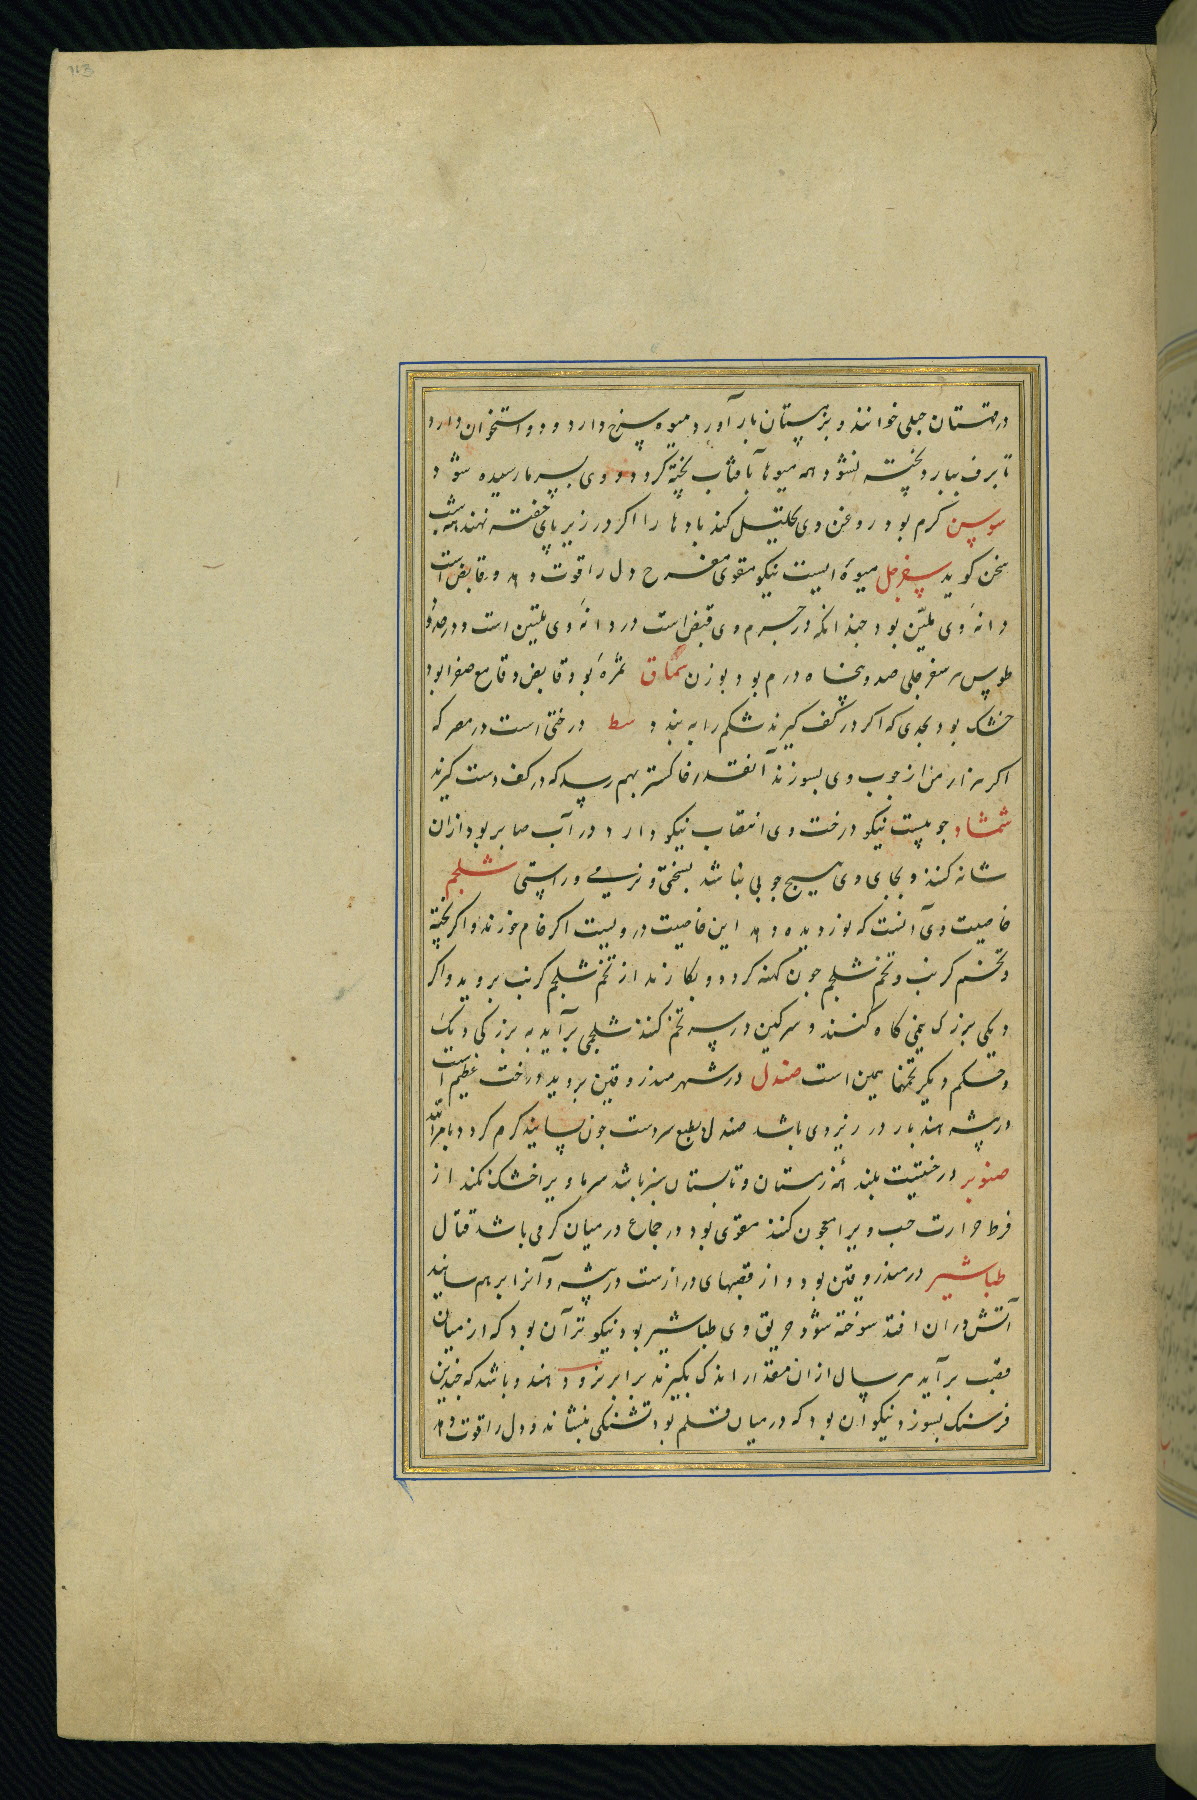 در قهستان جبلی خوانند و بزمستان بار آورد میوه سرخ دارد و دو استخوان دارد
تا برف نبارد پخته نشود همه میوها بآفتاب پخته کردد و وی بسرما رسیده شود
سوسن کرم بود روغن وی تحلیل کند بادها را اکر در زیر پای خفته نهند همه شب
سخن کوید سفرجل میوهٔ ایست نیکو مقوی مفرح دل را قوت دهد و قابض است
دانهٔ وی ملیّن بود چندانکه در جرم وی قبض است در دانهٔ وی تلیین است و در حدود
طوس هر سفرجلی صد و پنجاه درم بود بوزن سماق ثمرهٔ بود قابض و قامع صفرا بود
خشک بود بحدی که اکر در کف کیرند شکم را ببندد سط درختی است در مصر که
اکر هزار من از چوب وی بسوزند آنقدر خاکستر بهم رسد که در کف دست کیرند
شمشاد چوبیست نیکو درخت وی انتصاب نیکو دارد و در آب صابر بود ازان
شانه کنند و بجای وی هیچ چوبی نباشد بسختی و نرمی و راستی شلجم
خاصیت وی آنست که نور دیده دهد این خاصیت درویست اکر خام خورند و اکر پخته
و تخم کرنب و تخم شلجم چون کهنه کردد و بکارند از تخم شلجم کرنب بروید و اکر
دیکی بزرک یمنی کاه کنند و سرکین در سه تخم کنند شلجمی برآید به بزرکی دیک
و حکم دیکر تخمها همین است صندل در شهر مندروقین بروید درخت عظیم است
در بیشه هند بار در زیر وی باشد صندل بطبع سردست چون بسایند کرم کردد بامر الله
صنوبر درختیست بلند همه زمستان و تابستان سبز باشد سرما ویرا خشک نکند از
فرط حرارت حب ویرا معجون کنند مقوی بود در جماع در میان کرمی باشد قتال
طباشیر در مندروقین بود و از قصبهای درازست در بیشه و آنرا بر هم سایند
آتش دران افتد سوخته شود حریق وی طباشیر بود نیکوتر آن بود که از میان
قصب برآید هر سال ازان مقدار اندک بکیرند برابر بزر و دهند و باشد که چندین
فرسنک بسوزد نیکو ان بود که در میان قلم بود تشنکی بنشاند و دل را قوت دهد